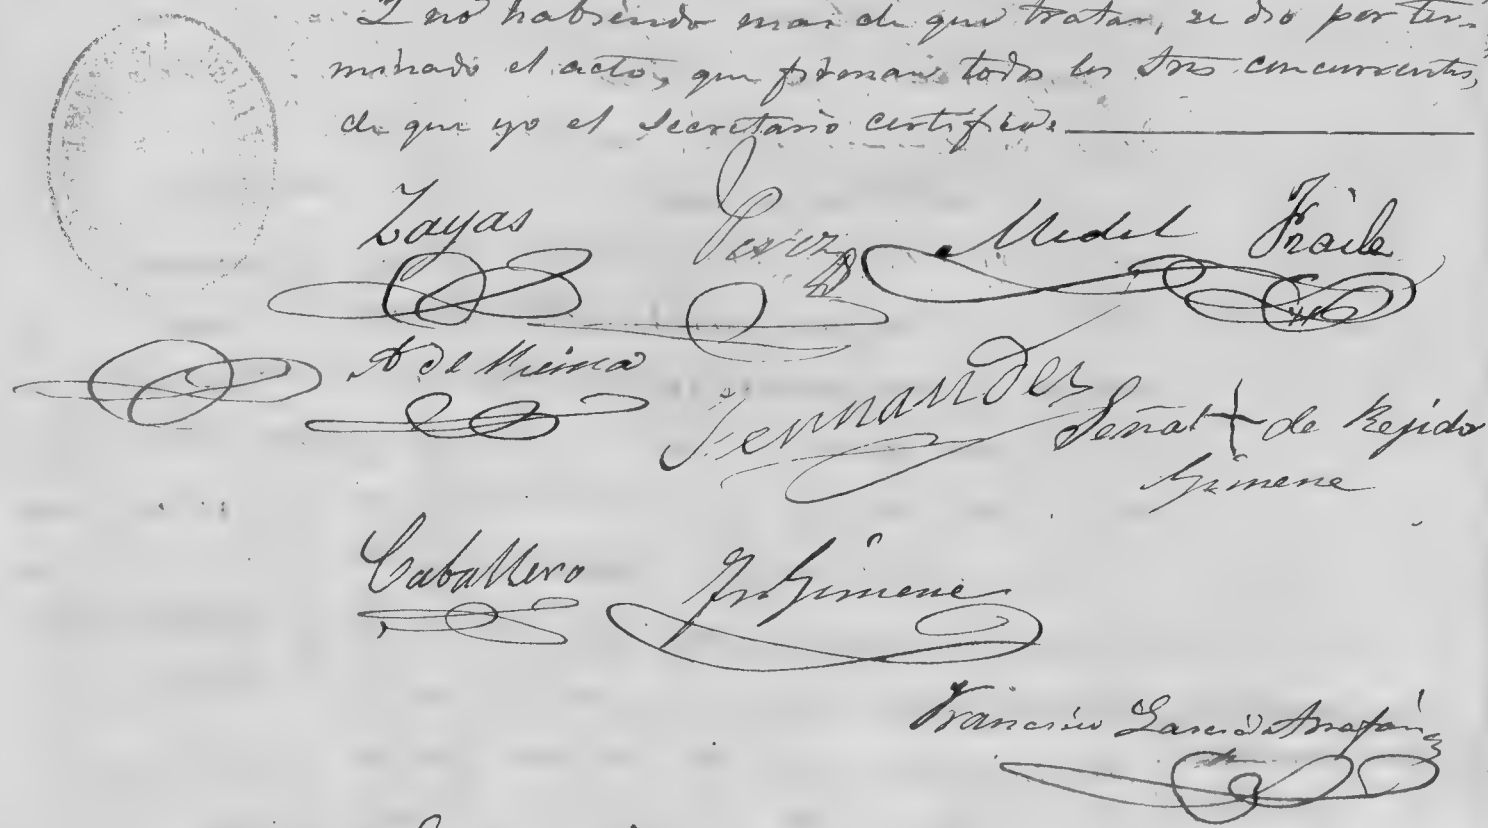 Y no habiendo mas de que tratar, se dio por ter-
minado el acto, que firman todos los Sres concurrentes,
de que yo el Secretario certifico.
Zayas Perez Medel Fraile
A de Fernandez Señal + de Rejidor
Gimene
Caballero Fr. Gimene
Francisco Garcia